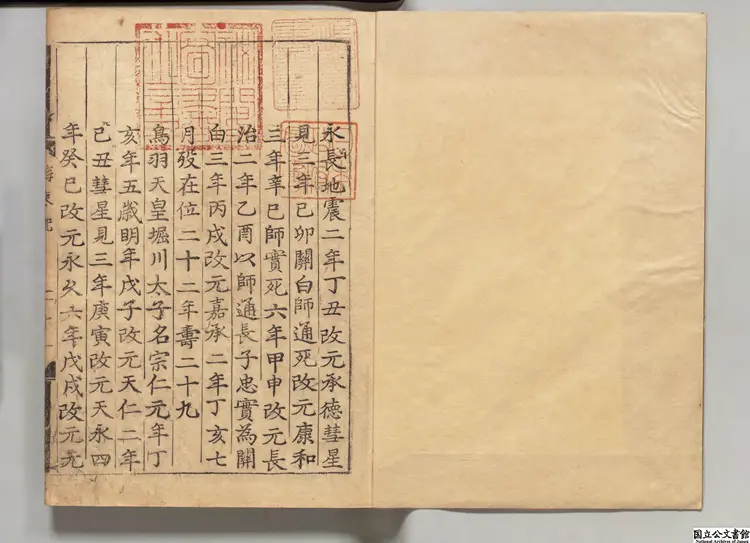 永長地震二年丁丑改元承德彗星
見二年己卯關白師通死改元康和
三年辛巳師實死六年甲申改元長
治二年乙酉以師通長子忠實為關
白三年丙戌改元嘉承二年丁亥七
月歿在位二十二年壽二十九
鳥羽天皇堀川太子名宗仁元年丁
亥年五歲明年戊子改元天仁二年
己丑彗星見三年庚寅改元天永四
年癸巳改元永久六年戊戌改元元
国立公文書館
National Archives of Japan